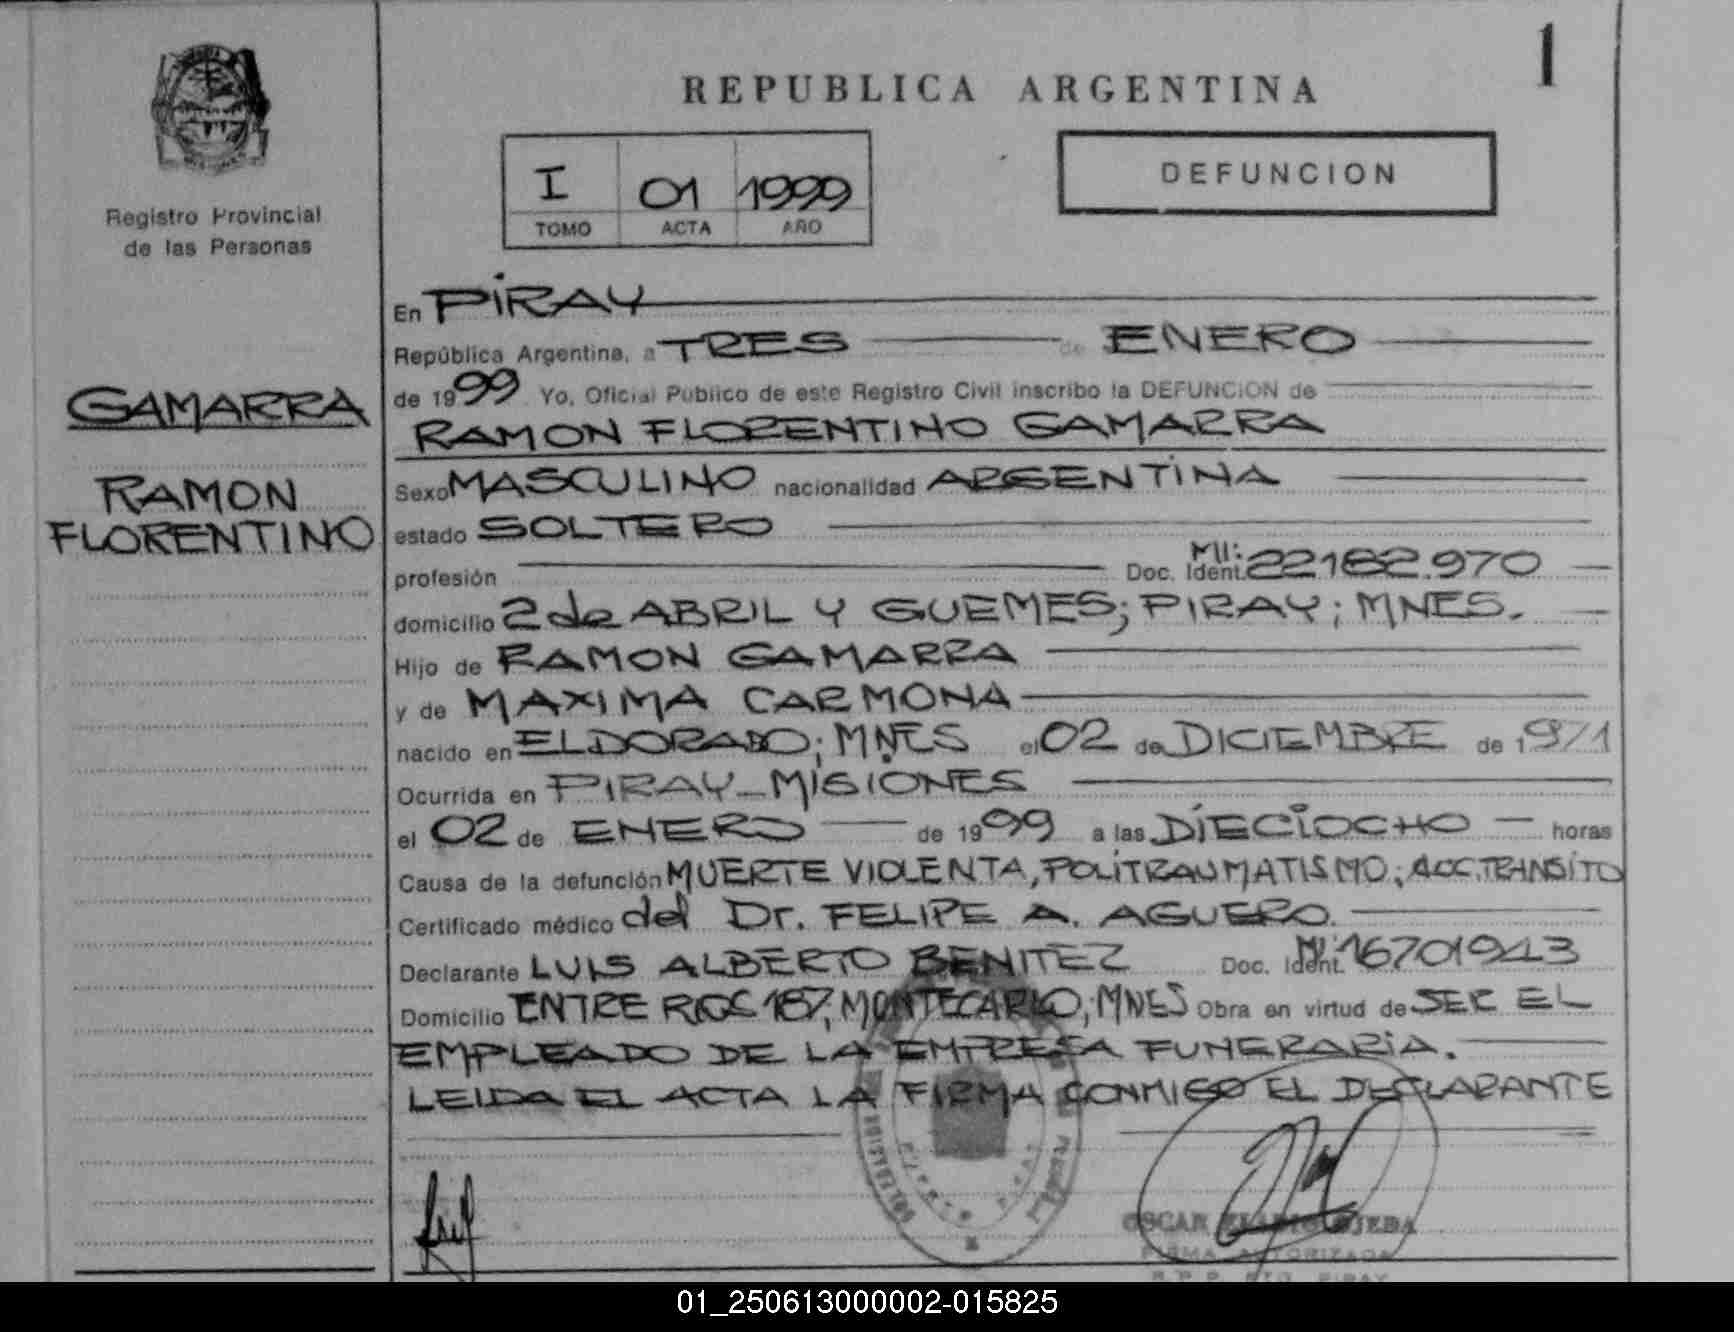 1
REPUBLICA ARGENTINA
I 01 1999
TOMO ACTA AÑO
DEFUNCION
Registro Provincial
de las Personas
GAMARRA
RAMON
FLORENTINO
En PIRAY
República Argentina, a TRES de ENERO
de 1999 Yo, Oficial Público de este Registro Civil inscribo la DEFUNCION de
RAMON FLORENTINO GAMARRA
Sexo MASCULINO nacionalidad ARGENTINA
estado SOLTERO
profesión Doc. Ident. MI: 22182.970
domicilio 2 de ABRIL Y GUEMES; PIRAY; MNES.
Hijo de RAMON GAMARRA
y de MAXIMA CARMONA
nacido en ELDORADO; MNES el 02 de DICIEMBRE de 1971
Ocurrida en PIRAY_MISIONES
el 02 de ENERO de 1999 a las DIECIOCHO horas
Causa de la defunción MUERTE VIOLENTA, POLITRAUMATISMO; ACC.TRANSITO
Certificado médico del Dr. FELIPE A. AGUERO.
Declarante LUIS ALBERTO BENITEZ Doc. Ident. MI: 16701943
Domicilio ENTRE RIOS 187; MONTECARLO; MNES Obra en virtud de SER EL
EMPLEADO DE LA EMPRESA FUNERARIA.
LEIDA EL ACTA LA FIRMA CONMIGO EL DECLARANTE
OSCAR OJEDA
FIRMA AUTORIZADA
PIRAY
01_250613000002-015825